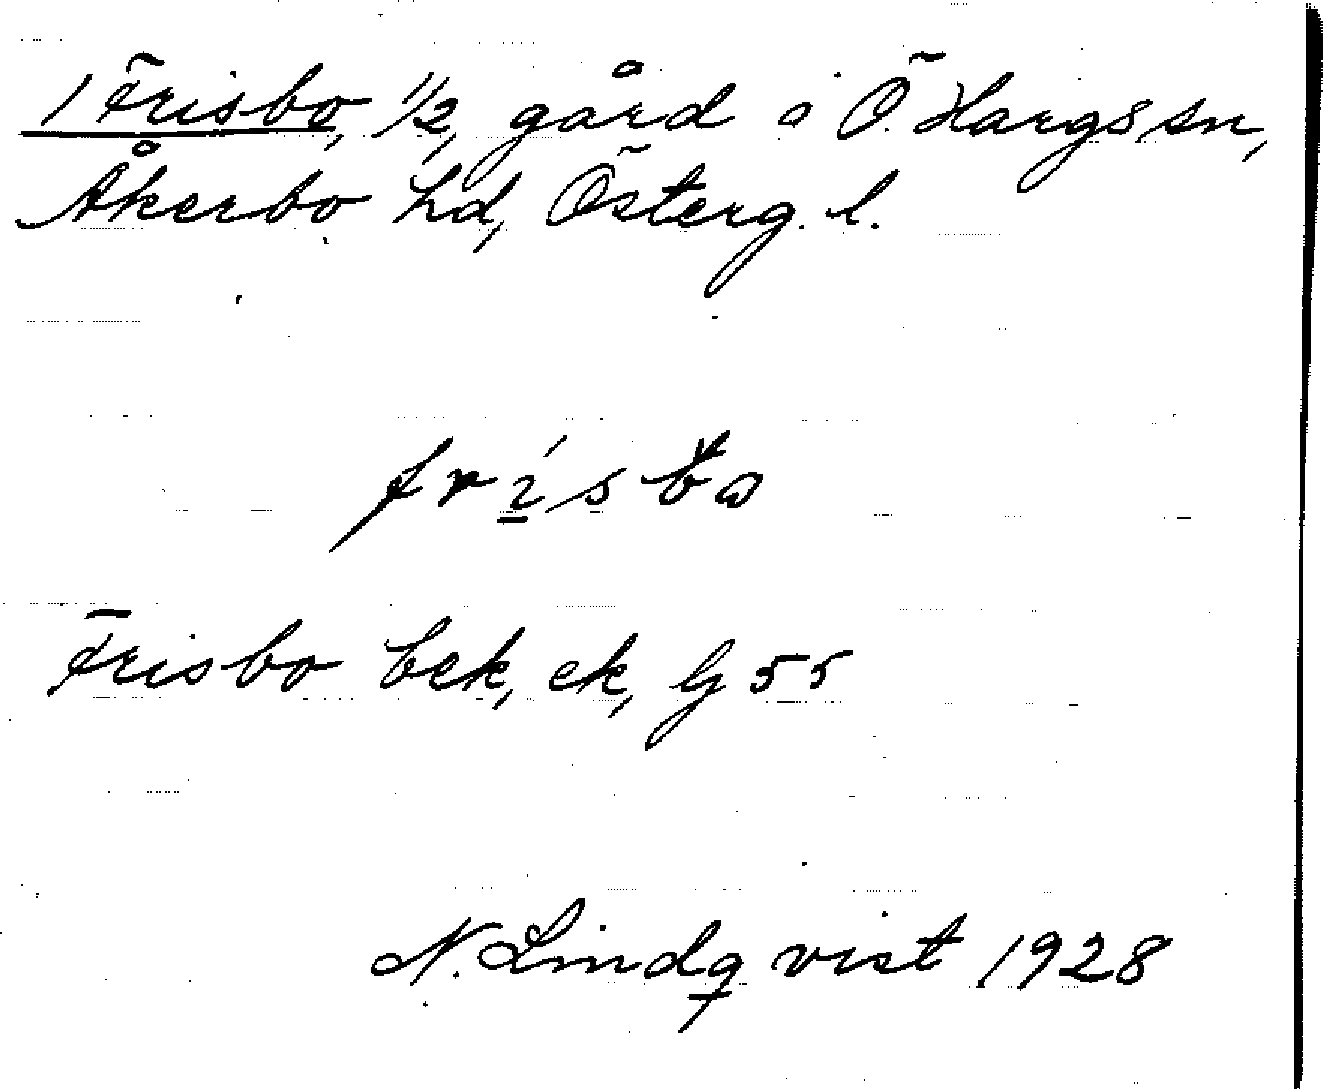 1 Frisbo, 1/2, gård i Ö. Hargs sn,
Åkerbo hd, Österg. l.
Frisbo bek, ek, G 55
N. Lindqvist 1928